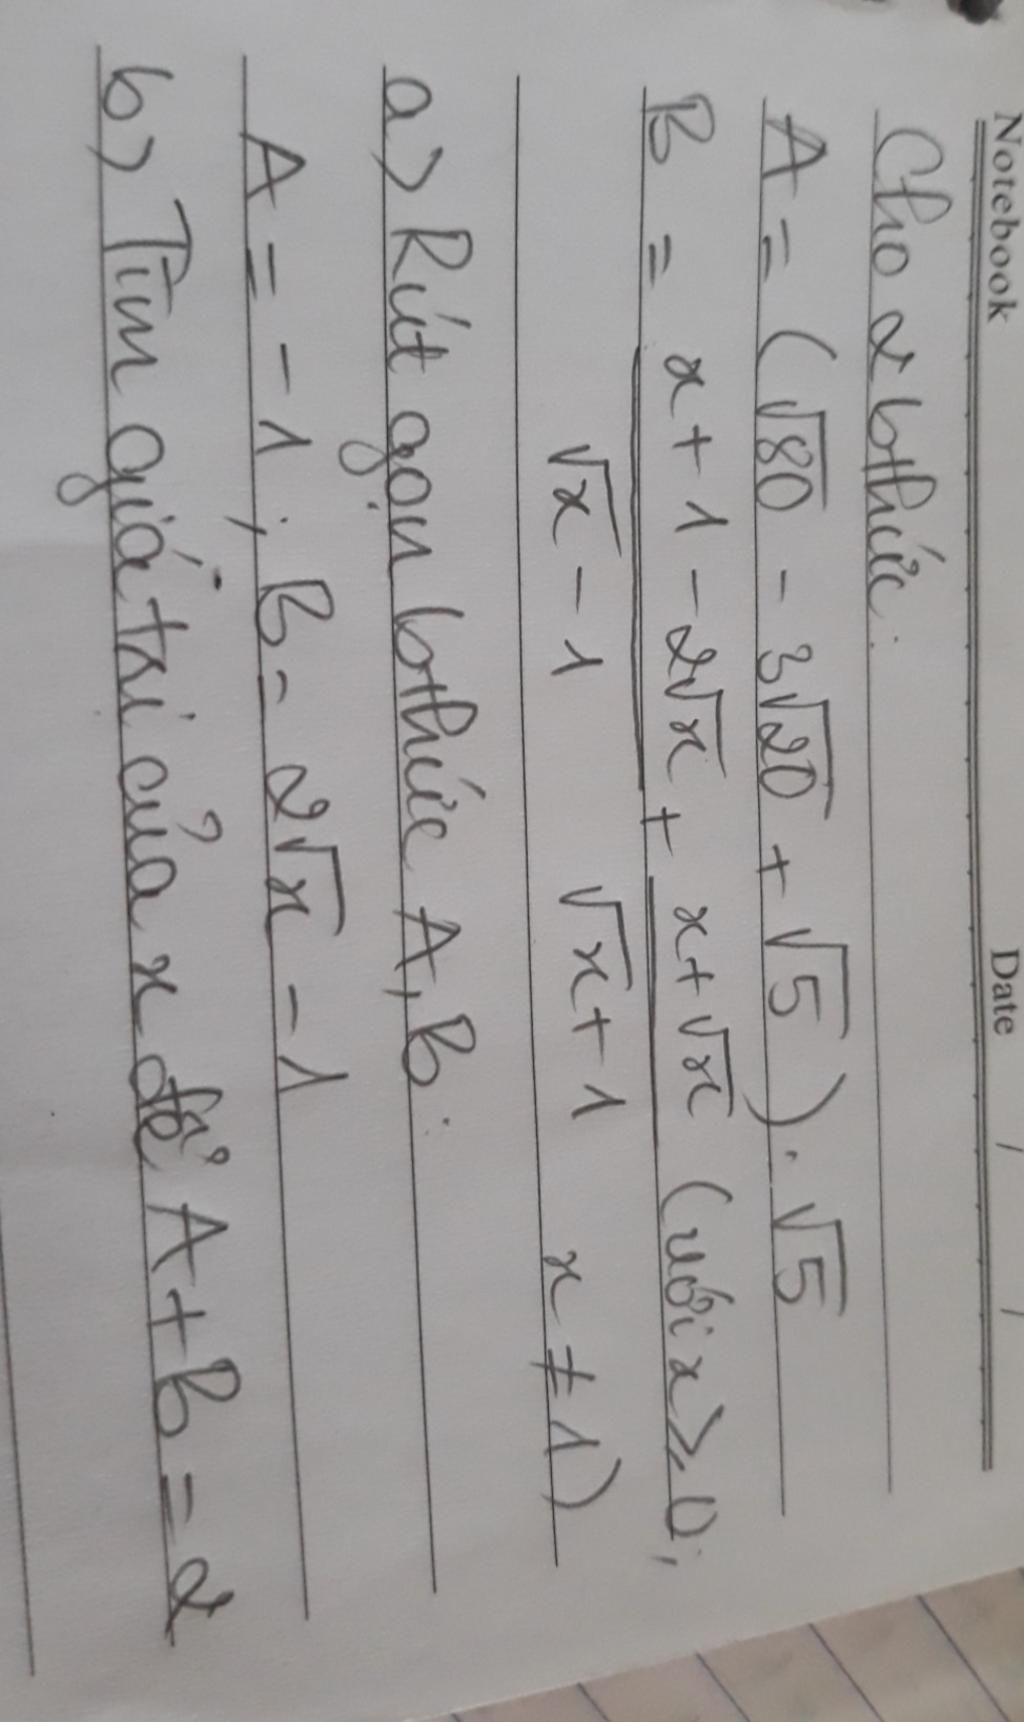 Notebook Date / /
Cho 2 bthức:
A = (√80 - 3√20 + √5) . √5
B = (x + 1 - 2√x)/(√x - 1) + (x + √x)/(√x + 1) (với x ≥ 0; x ≠ 1)
a> Rút gọn bthức A, B.
A = -1 ; B = 2√x - 1
b> Tìm giá trị của x để A + B = 2